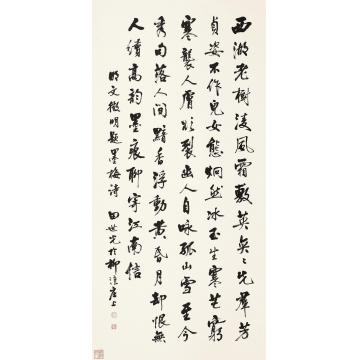 西湖老樹凌風霜敷英奐々先群芳
貞姿不作兒女態炯然冰玉生寒芒窮
寒襲人膚欲裂幽人自詠孤山雪至今
秀句落人間黯香浮動黃昏月却恨無
人續高韵墨痕聊寄江南信
明文徵明題墨梅詩 田世光於柳浪庄上